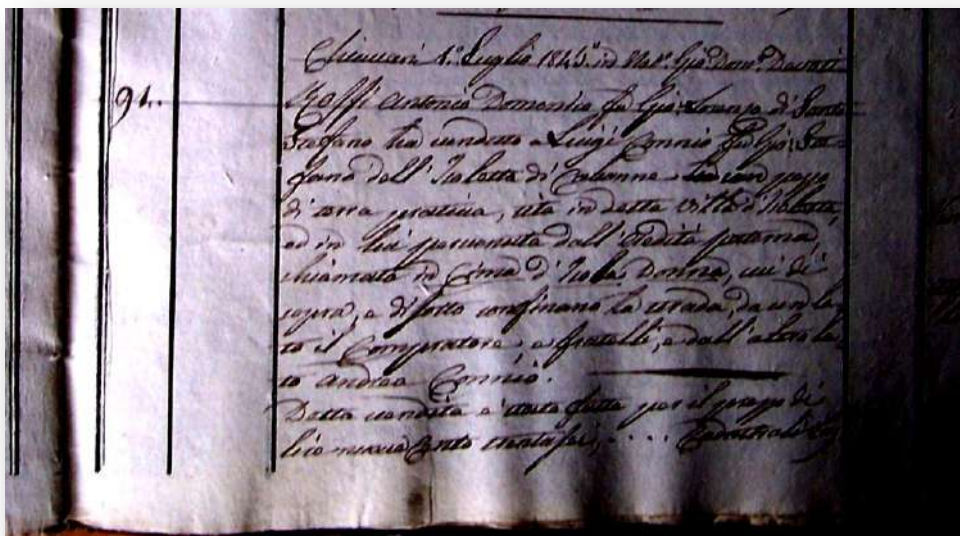 Chiavari 1.º Luglio 1845. in Not.º Gio: Dom.º Devoti
91. Antonia Domenica fu Gio: Lorenzo di Santo
Stefano ha venduto a Luigi Connio fu Gio: Ste=
fano dell' Isoletta di Cabanne un pezzo
di terra prativa, sita in detta Villa d'
ed in lei pervenuta dall' eredità paterna,
chiamata in Cima d' Isola Donna, cui di
sopra, e di sotto confinano la strada, da un la=
to il Compratore, e fratelli, e dall' altro la=
to Andrea Connio.
Detta vendita è stata fatta per il prezzo di
lire nuove Cento trentasei, . . . .